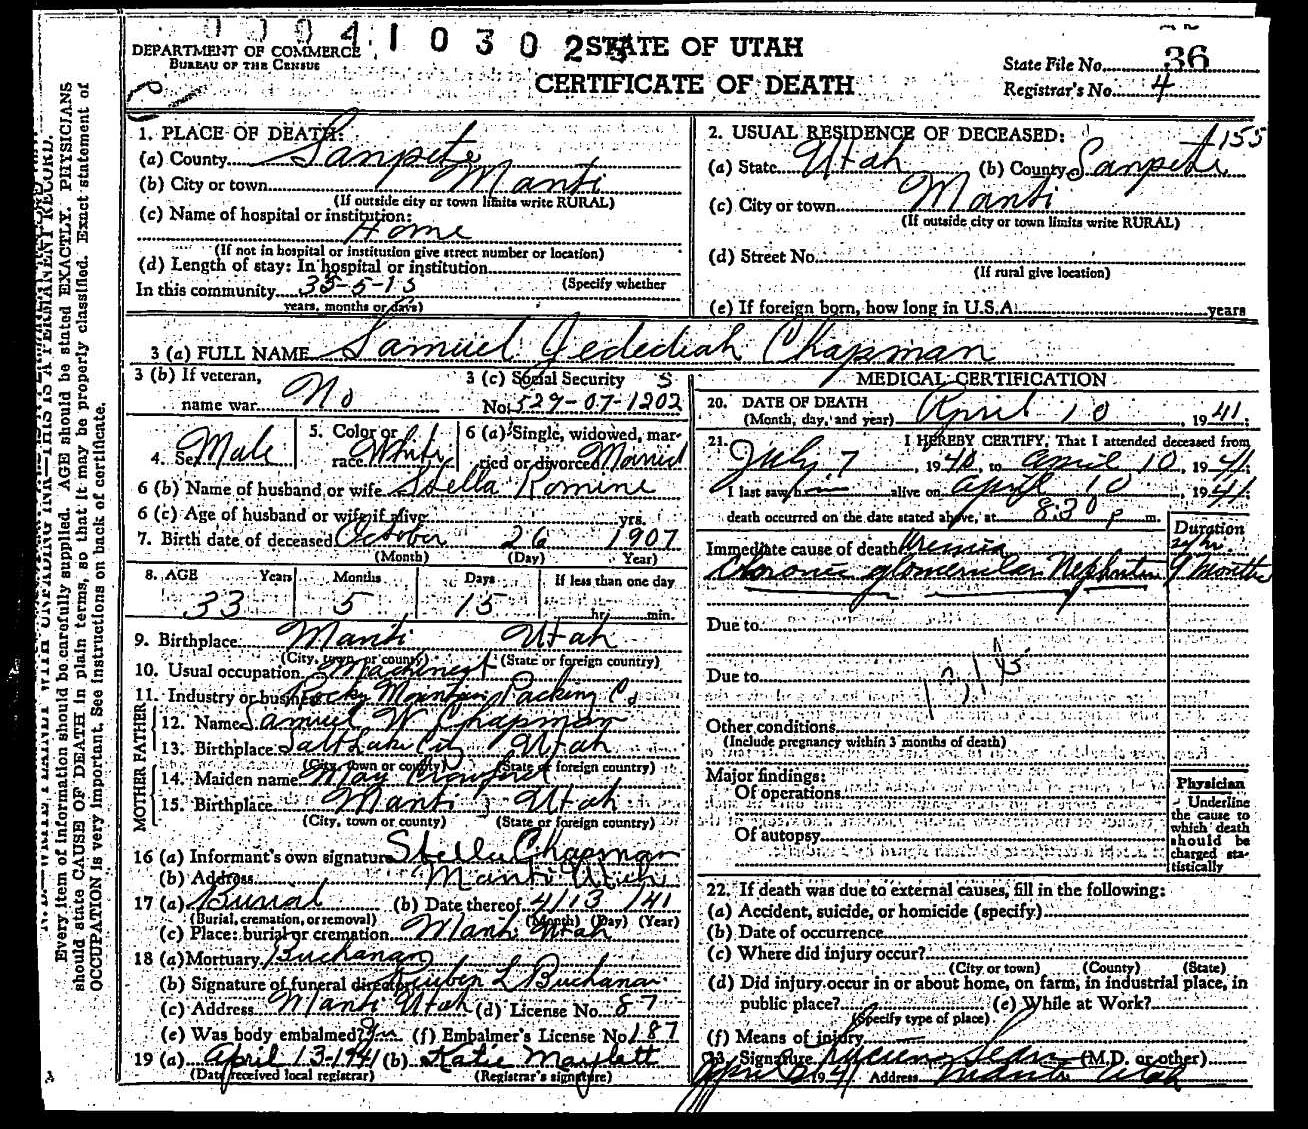 0 0 9 4 1 0 3 0 2 5
DEPARTMENT OF COMMERCE
BUREAU OF THE CENSUS
STATE OF UTAH
CERTIFICATE OF DEATH
State File No. 36
Registrar's No. 4
1. PLACE OF DEATH:
(a) County Sanpete
(b) City or town Manti
(If outside city or town limits write RURAL)
(c) Name of hospital or institution:
Home
(If not in hospital or institution give street number or location)
(d) Length of stay: In hospital or institution
(Specify whether
In this community 33-5-15
years, months or days)
2. USUAL RESIDENCE OF DECEASED: 1155
(a) State Utah (b) County Sanpete
(c) City or town Manti
(If outside city or town limits write RURAL)
(d) Street No.
(If rural give location)
(e) If foreign born, how long in U.S.A. years
3 (a) FULL NAME Samuel Jedediah Chapman
3 (b) If veteran,
name war No
3 (c) Social Security S
No. 529-07-1202
4. Sex Male
5. Color or
race White
6 (a) Single, widowed, mar-
ried or divorced Married
6 (b) Name of husband or wife Stella Romine
6 (c) Age of husband or wife if alive yrs.
7. Birth date of deceased October 26 1907
(Month) (Day) Year)
8. AGE Years Months Days If less than one day
33 5 15 hr. min.
9. Birthplace Manti Utah
(City, town or county) (State or foreign country)
10. Usual occupation Machinest
11. Industry or business Rocky Mountain Packing Co
FATHER
12. Name Samuel W Chapman
13. Birthplace Salt Lake City Utah
(City, town or county) (State or foreign country)
MOTHER
14. Maiden name May
15. Birthplace Manti Utah
(City, town or county) (State or foreign country)
16 (a) Informant's own signature Stella Chapman
(b) Address Manti Utah
17 (a) Burial (b) Date thereof 4/13/41
(Burial, cremation, or removal) (Month) (Day) (Year)
(c) Place: burial or cremation Manti Utah
18 (a) Mortuary Buchanan
(b) Signature of funeral director Reuben L Buchanan
(c) Address Manti Utah (d) License No. 87
(e) Was body embalmed? Yes (f) Embalmer's License No 187
19 (a) April 13-1941 (b) Katie Maylett
(Date received local registrar) (Registrar's signature)
MEDICAL CERTIFICATION
20. DATE OF DEATH
(Month, day, and year) April 10 1941.
21. I HEREBY CERTIFY, That I attended deceased from
July 7, 1940, to April 10, 1941.
I last saw him alive on April 10, 1941
death occurred on the date stated above, at 8:30 p m.
Duration
Immediate cause of death Uremia
Chronic glomerular Nephritis 9 months
Due to
Due to
131 b
Other conditions
(Include pregnancy within 3 months of death)
Major findings:
Of operations
Of autopsy
Physician
Underline
the cause to
which death
should be
charged sta-
tistically
22. If death was due to external causes, fill in the following:
(a) Accident, suicide, or homicide (specify)
(b) Date of occurrence
(c) Where did injury occur?
(City or town) (County) (State)
(d) Did injury occur in or about home, on farm, in industrial place, in
public place? (e) While at Work?
(Specify type of place)
(f) Means of injury
23. Signature (M.D. or other)
April 1941 Address Manti Utah
Every item of information should be carefully supplied. AGE should be stated EXACTLY. PHYSICIANS
should state CAUSE OF DEATH in plain terms, so that it may be properly classified. Exact statement of
OCCUPATION is very important. See instructions on back of certificate.